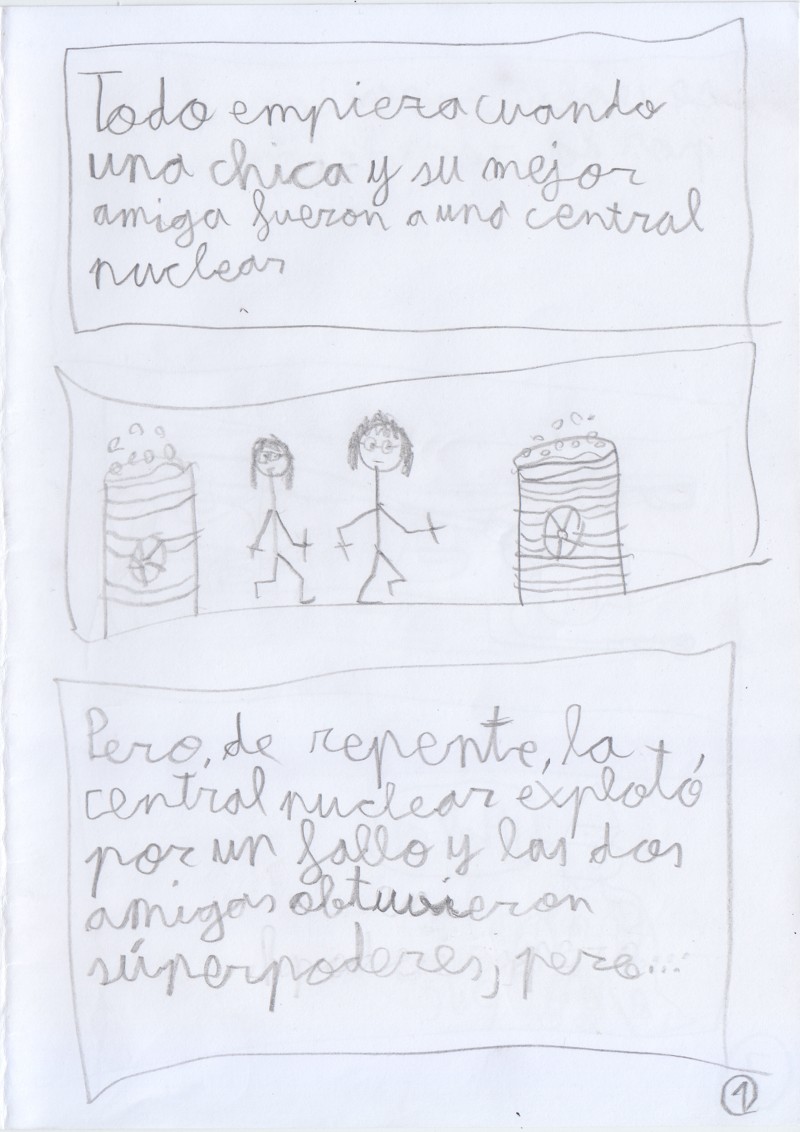 Todo empieza cuando
una chica y su mejor
amiga fueron a una central
nuclear
Pero, de repente, la
central nuclear explotó
por un fallo y las dos
amigas obtuvieron
súperpoderes, pero...
1